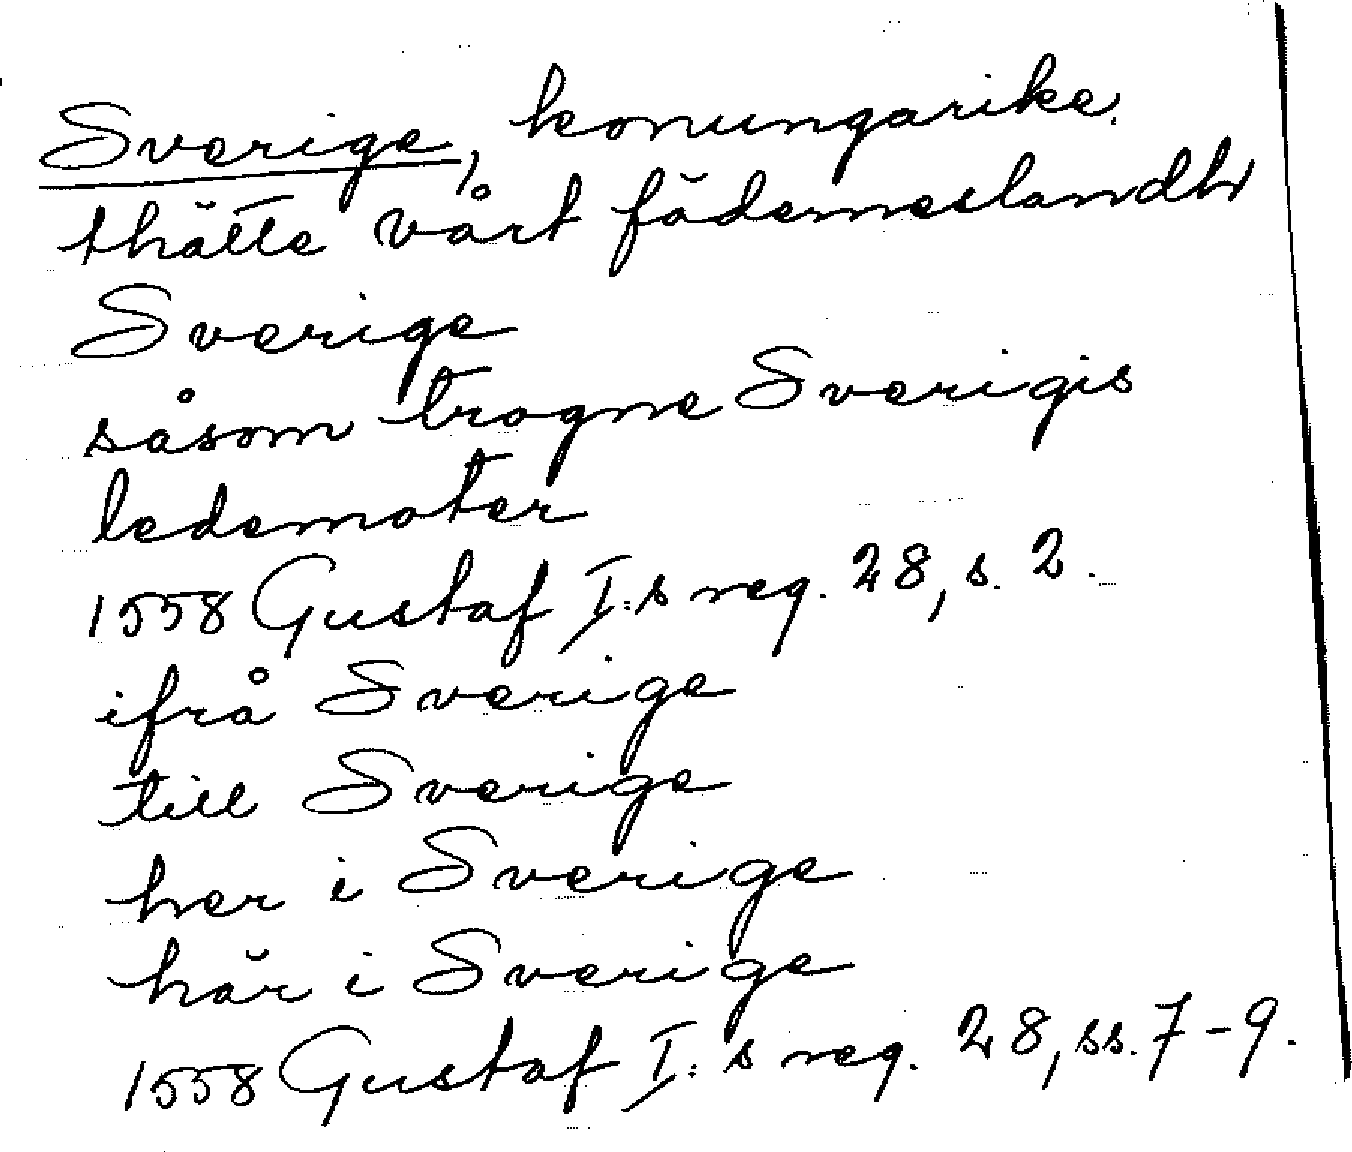 Sverige, konungarike.
thätte vårt fäderneslandh
Sverige
såsom trogne Sverigis
ledemoter
1558 Gustaf I:s reg. 28, s. 2.
ifrå Sverige
till Sverige
her i Sverige
här i Sverige
1558 Gustaf I:s reg. 28, ss. 7-9.